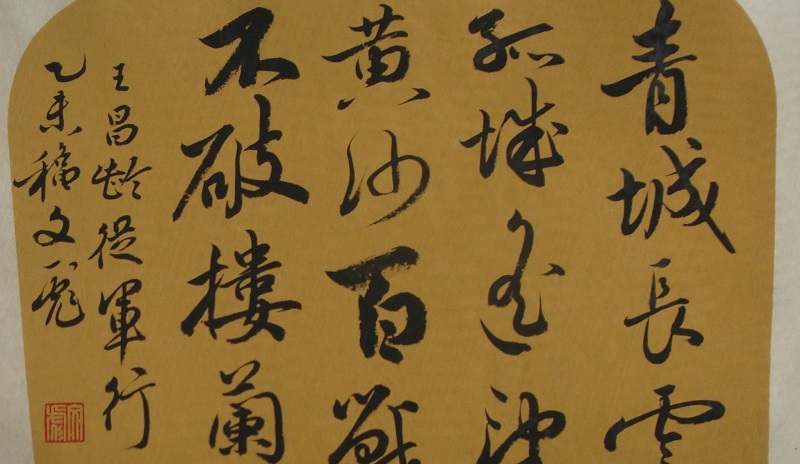 青城長雲
孤城遥望
黄沙百戰
不破樓蘭
王昌齡從軍行
乙未文彪